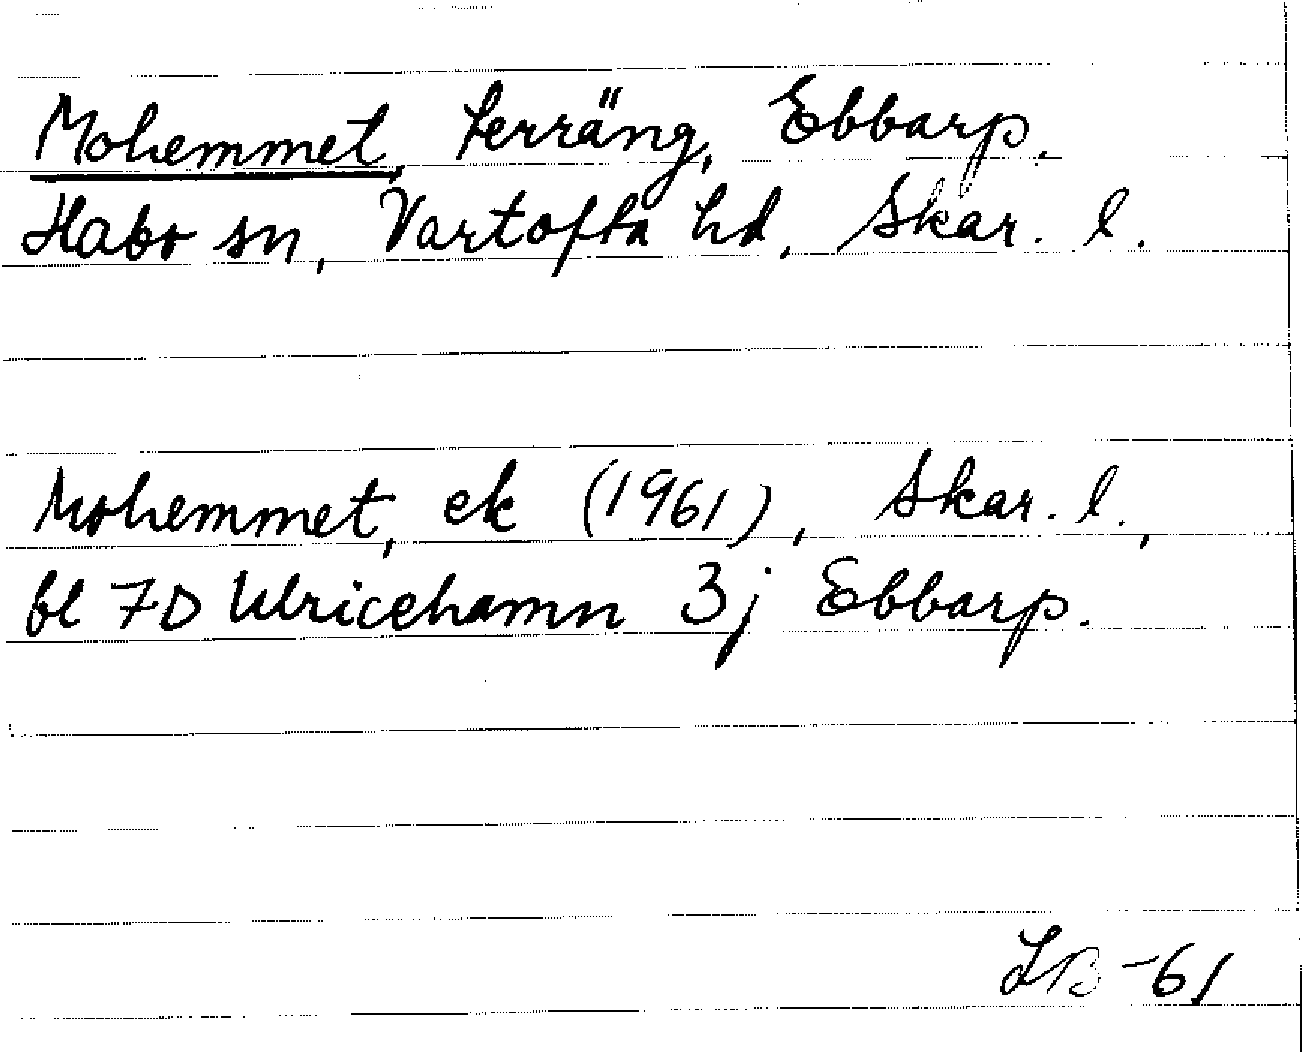 Mohemmet, terräng, Ebbarp,
Habo sn, Vartofta hd, Skar. l.
Mohemmet, ek (1961), Skar. l.,
bl 7D Ulricehamn 3j Ebbarp.
LB -61